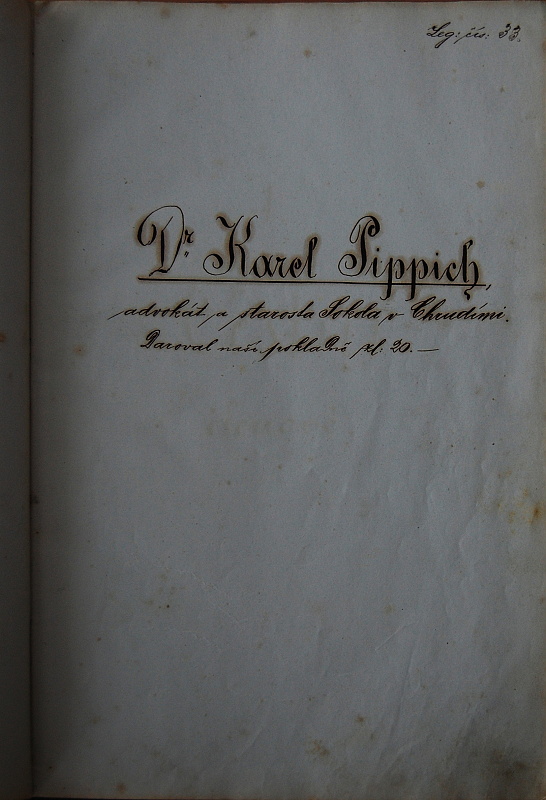 Leg: čís: 33.
Dr. Karel Pippich,
advokát a starosta Sokola v Chrudimi.
Daroval naší pokladně zl: 20.—